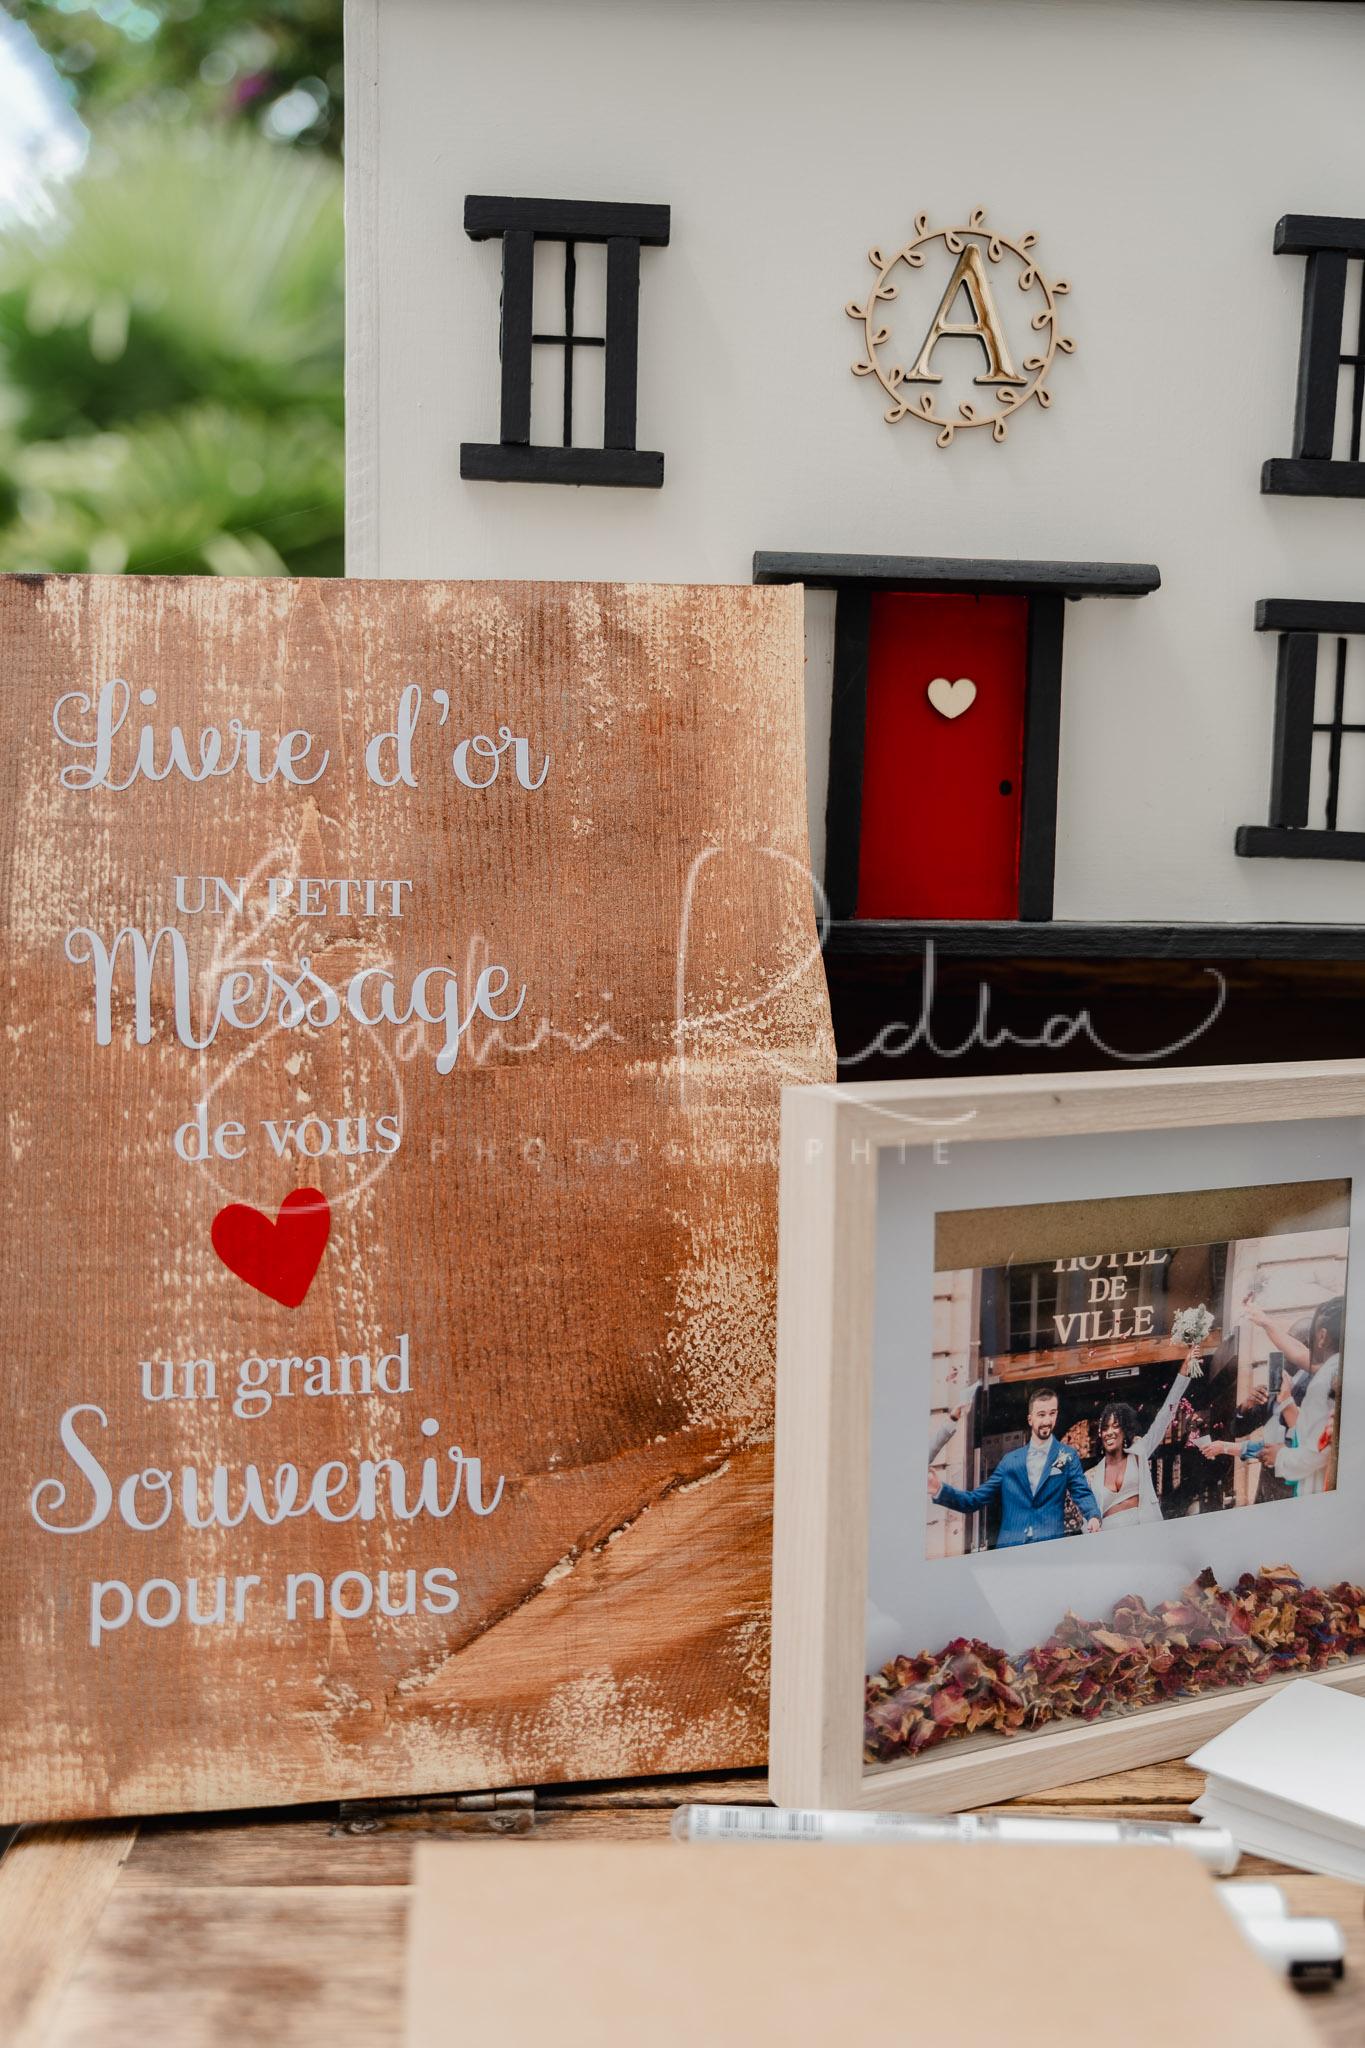 A
Livre d'or
UN PETIT
Message
de vous
un grand
Souvenir
pour nous
HÔTEL
DE
VILLE
PHOTOGRAPHIE